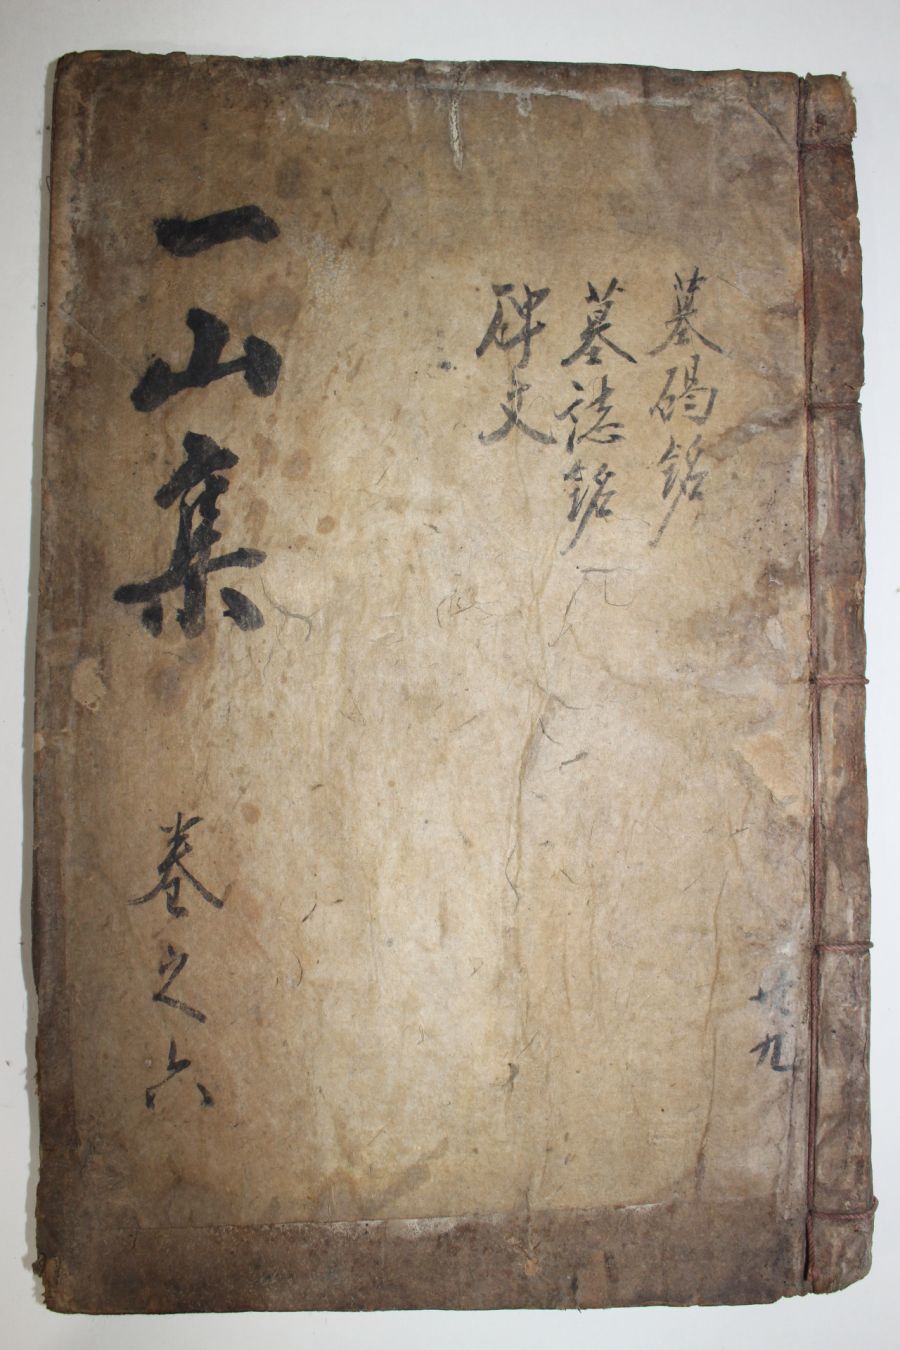 墓碣銘
墓誌銘
碑文
一山集
卷之六
廿九